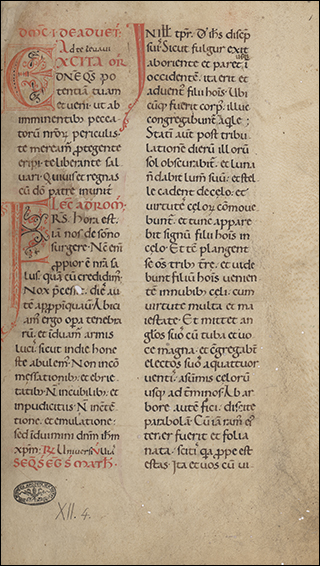 DOM̄C̄. I. DE ADUEN̄.
Ad te leuaui
EXCITA
DNE Q̄S PO
tentia tuam
et ueni. ut ab
imminentibꝰ pecca
torū nr̄oꝝ periculis
te meream̄ ꝓtegente
eripi te liberante sal
uari. Qui uiuis et regnas
cū dō patre
LEC̄ AD ROM̄.
FRS. Hora est
iā nos de sōno
surgere. N̄c em̄
ꝓpior ē nr̄a sa
lus quā cū credidim̄ꝰ.
Nox p̄cessit. dies aū
te appropīquaū. Abici
am̄ ergo oꝑa tenebra
rū. et īduam̄ arma
lucis. sicut in die hone
ste abulem̄. Non in cō
messationibꝰ et ebrie
tatibꝰ. N̄ in cubilibꝰ et
inpudicitiis. N̄ in cōtē
tione. et emulatione:
sed īduimini dn̄m ih̄m
xp̄m. R̄ Uniuersi
SEQ̄S EGS MATH.
IN ILL tp̄r. D̄ ih̄s discip̄
suis. Sicut fulgur exit
ab oriente et paret ī
usq̄
occidentē. ita erit et
aduent filii hoīs. Ubi
cūq̄ fuerit corpꝰ. illuc
congregabunt̄ aq̄le.
Statī aūt post tribu
lationē dierū illorū
sol obscurabit̄. et luna
n̄ dabit lum̄ suū. et stel
le cadent de celo. et
uirtutē celoꝝ cōmoue
bunt̄. et tunc appare
bit signū filii hoīs in
celo. Et tē plangent
se om̄s tribꝰ tr̄e. et uide
bunt filiū hoīs uenien
tē in nubibꝰ celi. cum
uirtute multa et ma
iestate. Et mittet an
glos suos cū tuba et uo
ce magna. et cōgregabt̄
electos suos a quattuor
uentis. a sūmis celorū
usq̄ ad tm̄inos eoꝝ. Ab ar
bore aute fici. discite
parabolā. Cū iā ramꝰ eiꝰ
tener fuerit et folia
nata. scitis q̄a ꝓpe est
estas. Ita et uos cū ui
XII. 4.